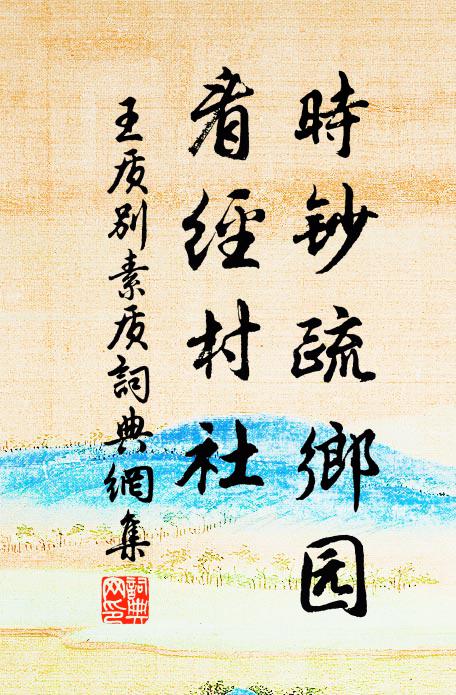 時鈔疏鄉园
看經村社
王质别素质詞典網集
詞典网印